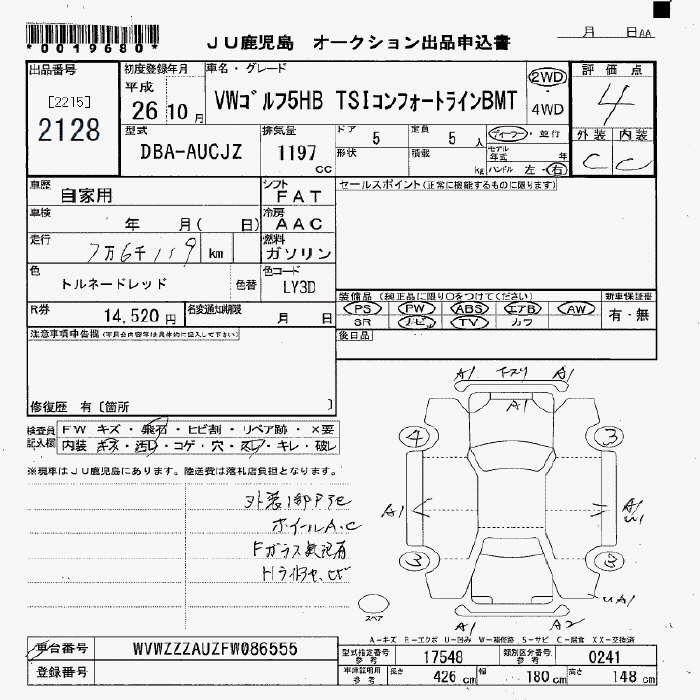 *0019680*
JU鹿児島 オークション出品申込書
月 日 AA
出品番号 初度登録年月 車名・グレード 評価点
[2215]
2128
平成
26 10 月
VWゴルフ5HB TSIコンフォートラインBMT
2WD
・
4WD
4
型式 排気量 ドア 5 定員 5 人 ディーラー・並行 外装 内装
DBA-AUCJZ 1197 cc
形状 積載 kg モデル年式 年
ハンドル 左・右
C C
車歴 自家用 シフト FAT セールスポイント(正常に機能するものに限ります)
車検 年 月( 日) 冷房 AAC
走行 7万6千119 km 燃料 ガソリン
色 トルネードレッド 色替 色コード LY3D
装備品 (純正品に限り○をつけてください) 新車保証書
PS PW ABS エアB AW 有・無
SR ナビ TV カワ
R券 14,520円 名変通知期限 月 日
注意事項申告欄
後日品
修復歴 有〔箇所 〕
検査員記入欄
FW キズ・飛石・ヒビ割・リペア跡・×要
内装 キズ・汚レ・コゲ・穴・スレ・キレ・破レ
※現車はJU鹿児島にあります。陸送費は落札店負担となります。
ホイールA.C
A1 A1
A1
4 3
A1 A1
3 3
UA1
スペア
A1 A2
A-キズ E-エクボ U-凹み W-補修跡 S-サビ C-腐食 XX-交換済
車台番号 WVWZZZAUZFW086555
登録番号
型式指定番号 参考 17548 類別区分番号 参考 0241
車庫証明用 参考 長さ 426 cm 幅 180 cm 高さ 148 cm